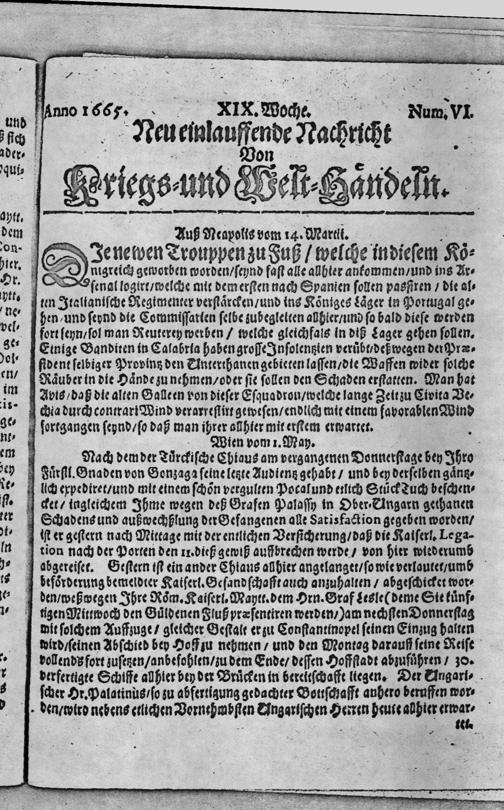 Anno 1665. XIX. Woche. Num. VI.
Neu einlauffende Nachricht
Von
Kriegs- und Welt-Händeln.
Auß Neapolis vom 14. Martii.
DIe newen Trouppen zu Fuß / welche in diesem Kö-
nigreich geworben worden / seynd fast alle allhier ankommen / und ins Ar-
senal logirt / welche mit dem ersten nach Spanien sollen passiren / die al-
ten Italianische Regimenter verstärcken / und ins Königes Läger in Portugal ge-
hen / und seynd die Commissarien selbe zubegleiten allhier / und so bald diese werden
fort seyn / sol man Reuterey werben / welche gleichfals in diß Lager gehen sollen.
Einige Banditen in Calabria haben grosse Insolentzien verübt / deßwegen der Præ-
sident selbiger Provintz den Unterthanen gebieten lassen / die Waffen wider solche
Räuber in die Hände zu nehmen / oder sie sollen den Schaden erstatten. Man hat
Avis / daß die alten Galleen von dieser Esquadron / welche lange Zeit zu Civita Ve-
chia durch contrari Wind verarrestirt gewesen / endlich mit einem favorablen Wind
fortgangen seynd / so daß man ihrer allhier mit erstem erwartet.
Wien vom 1. May.
Nach dem der Türckische Chiaus am vergangenen Donnerstage bey Ihro
Fürstl. Gnaden von Gonzaga seine letzte Audientz gehabt / und bey derselben gäntz-
lich expediret / und mit einem schön vergulten Pocal und etlich Stück Tuch beschen-
cket / ingleichem Ihme wegen deß Grafen Palassy in Ober-Ungarn gethanen
Schadens und außwechßlung der Gefangenen alle Satisfaction gegeben worden /
ist er gestern nach Mittage mit der entlichen Versicherung / daß die Kaiserl. Lega-
tion nach der Porten den 11. dieß gewiß auffbrechen werde / von hier wiederumb
abgereiset. Gestern ist ein ander Chiaus allhier angelanget / so wie verlautet / umb
beförderung bemeldter Kaiserl. Gesandschafft auch anzuhalten / abgeschicket wor-
den / weßwegen Ihre Röm. Kaiserl. Maytt. dem Hrn. Graf Lesle (deme Sie künf-
tigen Mittwoch den Güldenen Fluß præsentiren werden /) am nechsten Donnerstag
mit solchem Auffzuge / gleicher Gestalt er zu Constantinopel seinen Einzug halten
wird / seinen Abschied bey Hoff zu nehmen / und den Montag darauff seine Reise
vollends fort zusetzen / anbefohlen / zu dem Ende / dessen Hoffstadt abzuführen / 30.
derfertigte Schiffe allhier bey der Brücken in bereitschafft liegen. Der Ungari-
scher Hr. Palatinus / so zu abfertigung gedachter Bottschafft anhero beruffen wor-
den / wird nebens etlichen Vornehmbsten Ungarischen Herren heute allhier erwar-
tet.